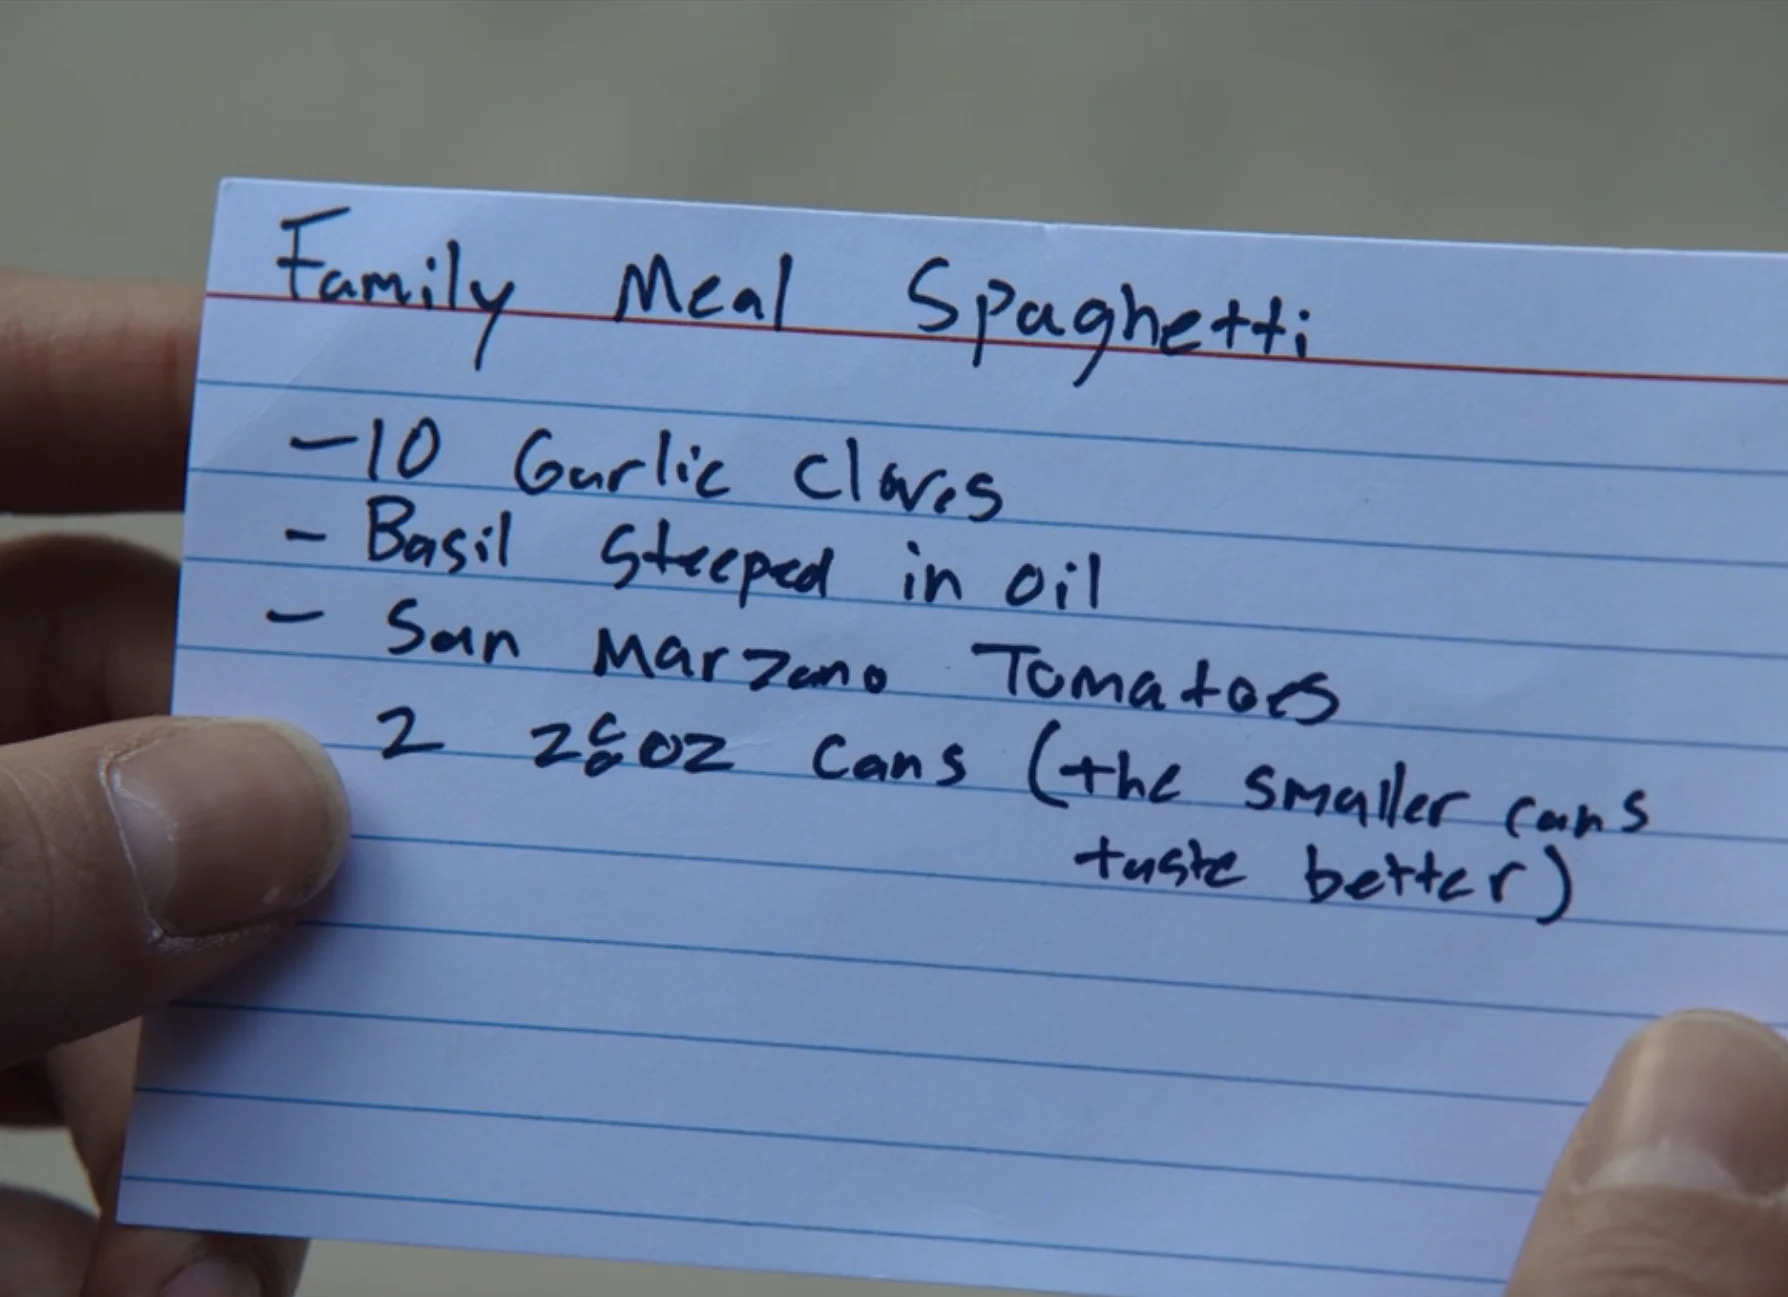 Family Meal Spaghetti
- 10 Garlic Cloves
- Basil Steeped in oil
- San Marzano Tomatoes
2 28oz cans (the smaller cans
taste better)